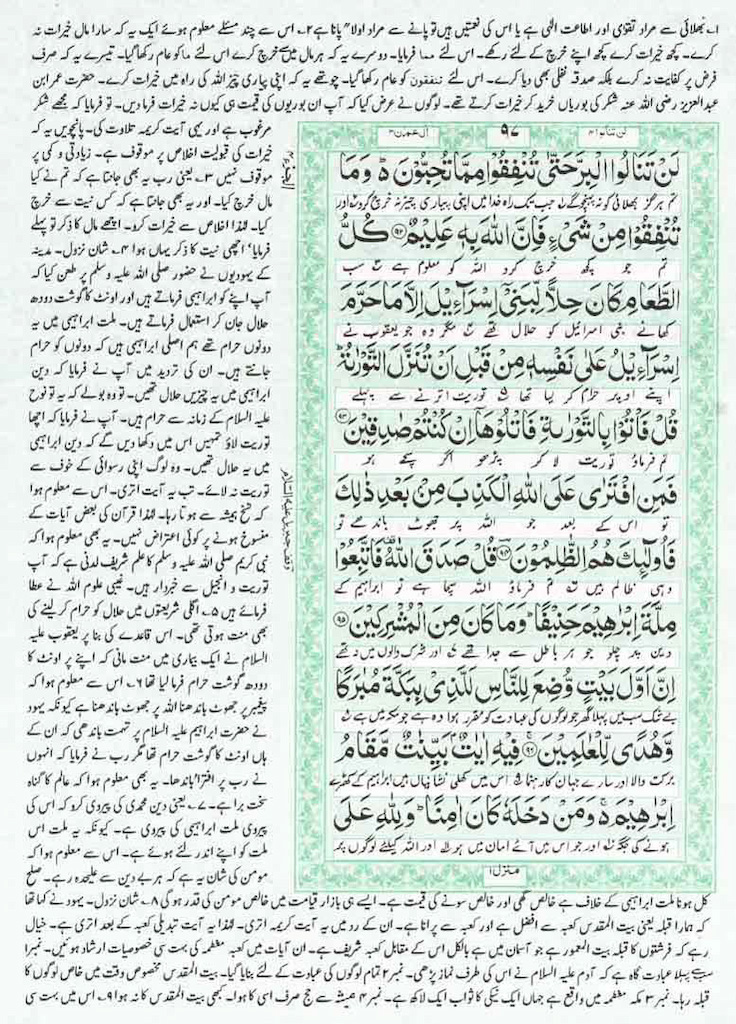 ۱۔ بھلائی سے مراد تقویٰ اور اطاعت الٰہی ہے یا اس کی نعمتیں ہیں تو پانے سے مراد اولاً پانا ہے ۲۔ اس سے چند مسئلے معلوم ہوئے ایک یہ کہ سارا مال خیرات نہ
کرے۔ کچھ خیرات کرے کچھ اپنے خرچ کے لئے رکھے۔ اس لئے مما فرمایا۔ دوسرے یہ کہ ہر مال میں سے خرچ کرے اس لئے ما کو عام رکھا گیا۔ تیسرے یہ کہ صرف
فرض پر کفایت نہ کرے بلکہ صدقہ نفلی بھی دیا کرے۔ اس لئے تنفقون کو عام رکھا گیا۔ چوتھے یہ کہ اپنی پیاری چیز اللہ کی راہ میں خیرات کرے۔ حضرت عمر ابن
عبدالعزیز رضی اللہ عنہ شکر کی بوریاں خرید کر خیرات کرتے تھے۔ لوگوں نے عرض کیا کہ آپ ان بوریوں کی قیمت ہی کیوں نہ خیرات فرما دیں۔ تو فرمایا کہ مجھے شکر
مرغوب ہے اور یہی آیت کریمہ تلاوت کی۔ پانچویں یہ کہ
خیرات کی قبولیت اخلاص پر موقوف ہے۔ زیادتی و کمی پر
موقوف نہیں ۳۔ یعنی رب یہ بھی جانتا ہے کہ تم نے کیا
مال خرچ کیا۔ اور یہ بھی جانتا ہے کہ کس نیت سے خرچ
کیا۔ لہذا اخلاص سے خیرات کرو۔ اچھے مال کا ذکر تو پہلے
فرمایا' اچھی نیت کا ذکر یہاں ہوا ۴۔ شان نزول۔ مدینہ
کے یہودیوں نے حضور صلی اللہ علیہ وسلم پر طعن کیا کہ
آپ اپنے کو ابراہیمی فرماتے ہیں اور اونٹ کا گوشت دودھ
حلال جان کر استعمال فرماتے ہیں۔ ملت ابراہیمی میں یہ
دونوں حرام تھے ہم اصلی ابراہیمی ہیں کہ دونوں کو حرام
جانتے ہیں۔ ان کی تردید میں آپ نے فرمایا کہ دین
ابراہیمی میں یہ چیزیں حلال تھیں۔ تو وہ بولے کہ یہ تو نوح
علیہ السلام کے زمانہ سے حرام ہیں۔ آپ نے فرمایا کہ اچھا
توریت لاؤ تمہیں اس میں دکھا دیں گے کہ دین ابراہیمی
میں یہ حلال تھیں۔ وہ لوگ اپنی رسوائی کے خوف سے
توریت نہ لائے۔ تب یہ آیت اتری۔ اس سے معلوم ہوا
کہ نسخ ہمیشہ سے ہوتا رہا۔ لہذا قرآن کی بعض آیات کے
منسوخ ہونے پر کوئی اعتراض نہیں۔ یہ بھی معلوم ہوا کہ
نبی کریم صلی اللہ علیہ وسلم کا علم شریف لدنی ہے کہ آپ
توریت و انجیل سے خبردار ہیں۔ غیبی علوم اللہ نے عطا
فرمائے ہیں ۵۔ اگلی شریعتوں میں حلال کو حرام کر لینے کی
بھی منت ہوتی تھی۔ اس قاعدے کی بنا پر یعقوب علیہ
السلام نے ایک بیماری میں منت مانی کہ اپنے پر اونٹ کا
دودھ گوشت حرام فرما لیا تھا ۶۔ اس سے معلوم ہوا کہ
پیغمبر پر جھوٹ باندھنا اللہ پر جھوٹ باندھنا ہے کیونکہ یہود
نے حضرت ابراہیم علیہ السلام پر تہمت باندھی کہ ان کے
ہاں اونٹ کا گوشت حرام تھا مگر رب نے فرمایا کہ انہوں
نے رب پر افترا باندھا۔ یہ بھی معلوم ہوا کہ عالم کا گناہ
سخت برا ہے۔ ۷۔ یعنی دین محمدی کی پیروی کرو کہ اس کی
پیروی ملت ابراہیمی کی پیروی ہے۔ کیونکہ یہ ملت اس
ملت کو اپنے اندر لئے ہوئے ہے۔ اس سے معلوم ہوا کہ
مومن کی شان یہ ہے کہ ہر بے دین سے علیحدہ رہے۔ صلح
لن تنالوا ۴
۹۷
آل عمرٰن ۳
لَنْ تَنَالُوا الْبِرَّ حَتّٰى تُنْفِقُوْا مِمَّا تُحِبُّوْنَ ۬ؕ وَمَا
تم ہرگز بھلائی کو نہ پہنچو گے ۱ جب تک راہ خدا میں اپنی پیاری چیز نہ خرچ کرو ۲ اور
تُنْفِقُوْا مِنْ شَیْءٍ فَاِنَّ اللّٰهَ بِهٖ عَلِیْمٌ ﴿۹۲﴾ كُلُّ
تم جو کچھ خرچ کرو اللہ کو معلوم ہے ۳ سب
الطَّعَامِ كَانَ حِلًّا لِّبَنِیْۤ اِسْرَآءِیْلَ اِلَّا مَا حَرَّمَ
کھانے بنی اسرائیل کو حلال تھے ۴ مگر وہ جو یعقوب نے
اِسْرَآءِیْلُ عَلٰى نَفْسِهٖ مِنْ قَبْلِ اَنْ تُنَزَّلَ التَّوْرٰىةُ ؕ
اپنے اوپر حرام کر لیا تھا ۵ توریت اترنے سے پہلے
قُلْ فَاْتُوْا بِالتَّوْرٰىةِ فَاتْلُوْهَاۤ اِنْ كُنْتُمْ صٰدِقِیْنَ ﴿۹۳﴾
تم فرماؤ توریت لا کر پڑھو اگر سچے ہو
فَمَنِ افْتَرٰى عَلَى اللّٰهِ الْكَذِبَ مِنْۢ بَعْدِ ذٰلِكَ
تو اس کے بعد جو اللہ پر جھوٹ باندھے تو
فَاُولٰٓىِٕكَ هُمُ الظّٰلِمُوْنَ ﴿۹۴﴾ قُلْ صَدَقَ اللّٰهُ ۫ فَاتَّبِعُوْا
وہی ظالم ہیں ۶ تم فرماؤ اللہ سچا ہے تو ابراہیم کے
مِلَّةَ اِبْرٰهِیْمَ حَنِیْفًا ؕ وَمَا كَانَ مِنَ الْمُشْرِكِیْنَ ﴿۹۵﴾
دین پر چلو جو ہر باطل سے جدا تھے ۷ اور شرک والوں میں نہ تھے
اِنَّ اَوَّلَ بَیْتٍ وُّضِعَ لِلنَّاسِ لَلَّذِیْ بِبَكَّةَ مُبٰرَكًا
بے شک سب میں پہلا گھر جو لوگوں کی عبادت کو مقرر ہوا وہ ہے جو مکہ میں ہے ۸
وَّهُدًى لِّلْعٰلَمِیْنَ ﴿۹۶﴾ فِیْهِ اٰیٰتٌۢ بَیِّنٰتٌ مَّقَامُ
برکت والا اور سارے جہان کا رہنما ۹ اس میں کھلی نشانیاں ہیں ابراہیم کے کھڑے
اِبْرٰهِیْمَ ۬ۚ وَمَنْ دَخَلَهٗ كَانَ اٰمِنًا ؕ وَلِلّٰهِ عَلَى
ہونے کی جگہ اور جو اس میں آئے امان میں ہو اور اللہ کیلئے لوگوں پر
منزل ۱
کل ہونا ملت ابراہیمی کے خلاف ہے خالص گھی اور خالص سونے کی قیمت ہے۔ ایسے ہی بازار قیامت میں خالص مومن کی قدر ہو گی ۸۔ شان نزول۔ یہود نے کہا تھا
کہ ہمارا قبلہ یعنی بیت المقدس کعبہ سے افضل ہے اور کعبہ سے پرانا ہے۔ ان کے رد میں یہ آیت کریمہ اتری۔ لہذا یہ آیت تبدیلی کعبہ کے بعد اتری ہے۔ خیال
رہے کہ فرشتوں کا قبلہ بیت المعمور ہے جو آسمان میں ہے بالکل اس کے مقابل کعبہ شریف ہے۔ ان آیات میں کعبہ معظمہ کی بہت سی خصوصیات ارشاد ہوئیں۔ نمبر ا
سب سے پہلا عبادت گاہ ہے کہ آدم علیہ السلام نے اس کی طرف نماز پڑھی۔ نمبر ۲ تمام لوگوں کی عبادت کے لئے بنایا گیا۔ بیت المقدس مخصوص وقت میں خاص لوگوں کا
قبلہ رہا۔ نمبر ۳ مکہ معظمہ میں واقع ہے جہاں ایک نیکی کا ثواب ایک لاکھ ہے۔ نمبر ۴ ہمیشہ سے حج صرف اسی کا ہوا۔ کبھی بیت المقدس کا نہ ہوا ۹۔ اس میں بہت سی